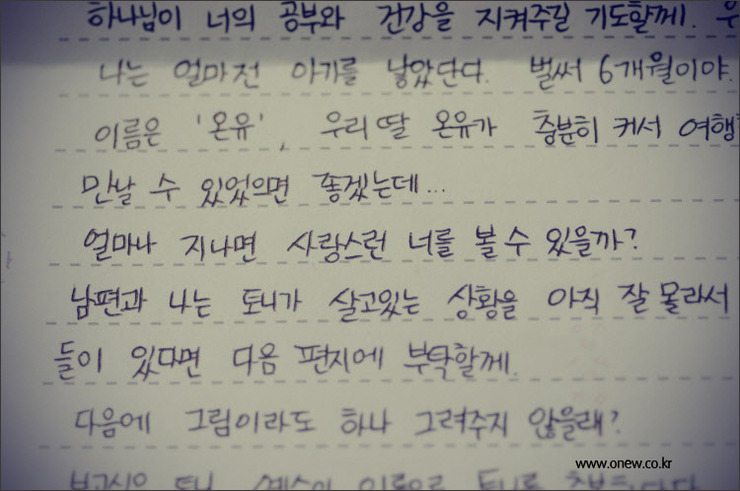 하나님이 너의 공부와 건강을 지켜주길 기도할께!. 우
나는 얼마전 아기를 낳았단다. 벌써 6개월이야.
이름은 '온유', 우리 딸 온유가 충분히 커서 여행
만날 수 있었으면 좋겠는데...
얼마나 지나면 사랑스런 너를 볼 수 있을까?
남편과 나는 토니가 살고있는 상황을 아직 잘 몰라서
들이 있다면 다음 편지에 부탁할께.
다음에 그림이라도 하나 그려주지 않을래?
www.onew.co.kr